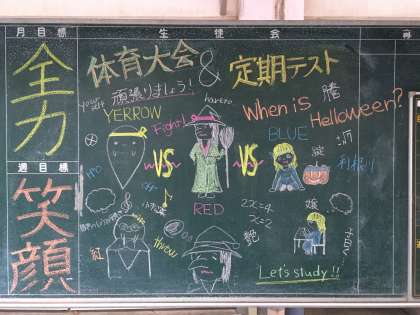 月目標
生徒会
再
全力
体育大会
&
定期テスト
頑張りましょう!
YERROW
Fight!
When is
Helloween?
BLUE
VS
VS
利根川
週目標
笑顔
RED
2x=4
x=2
紅
艶
threw
Let's study!!